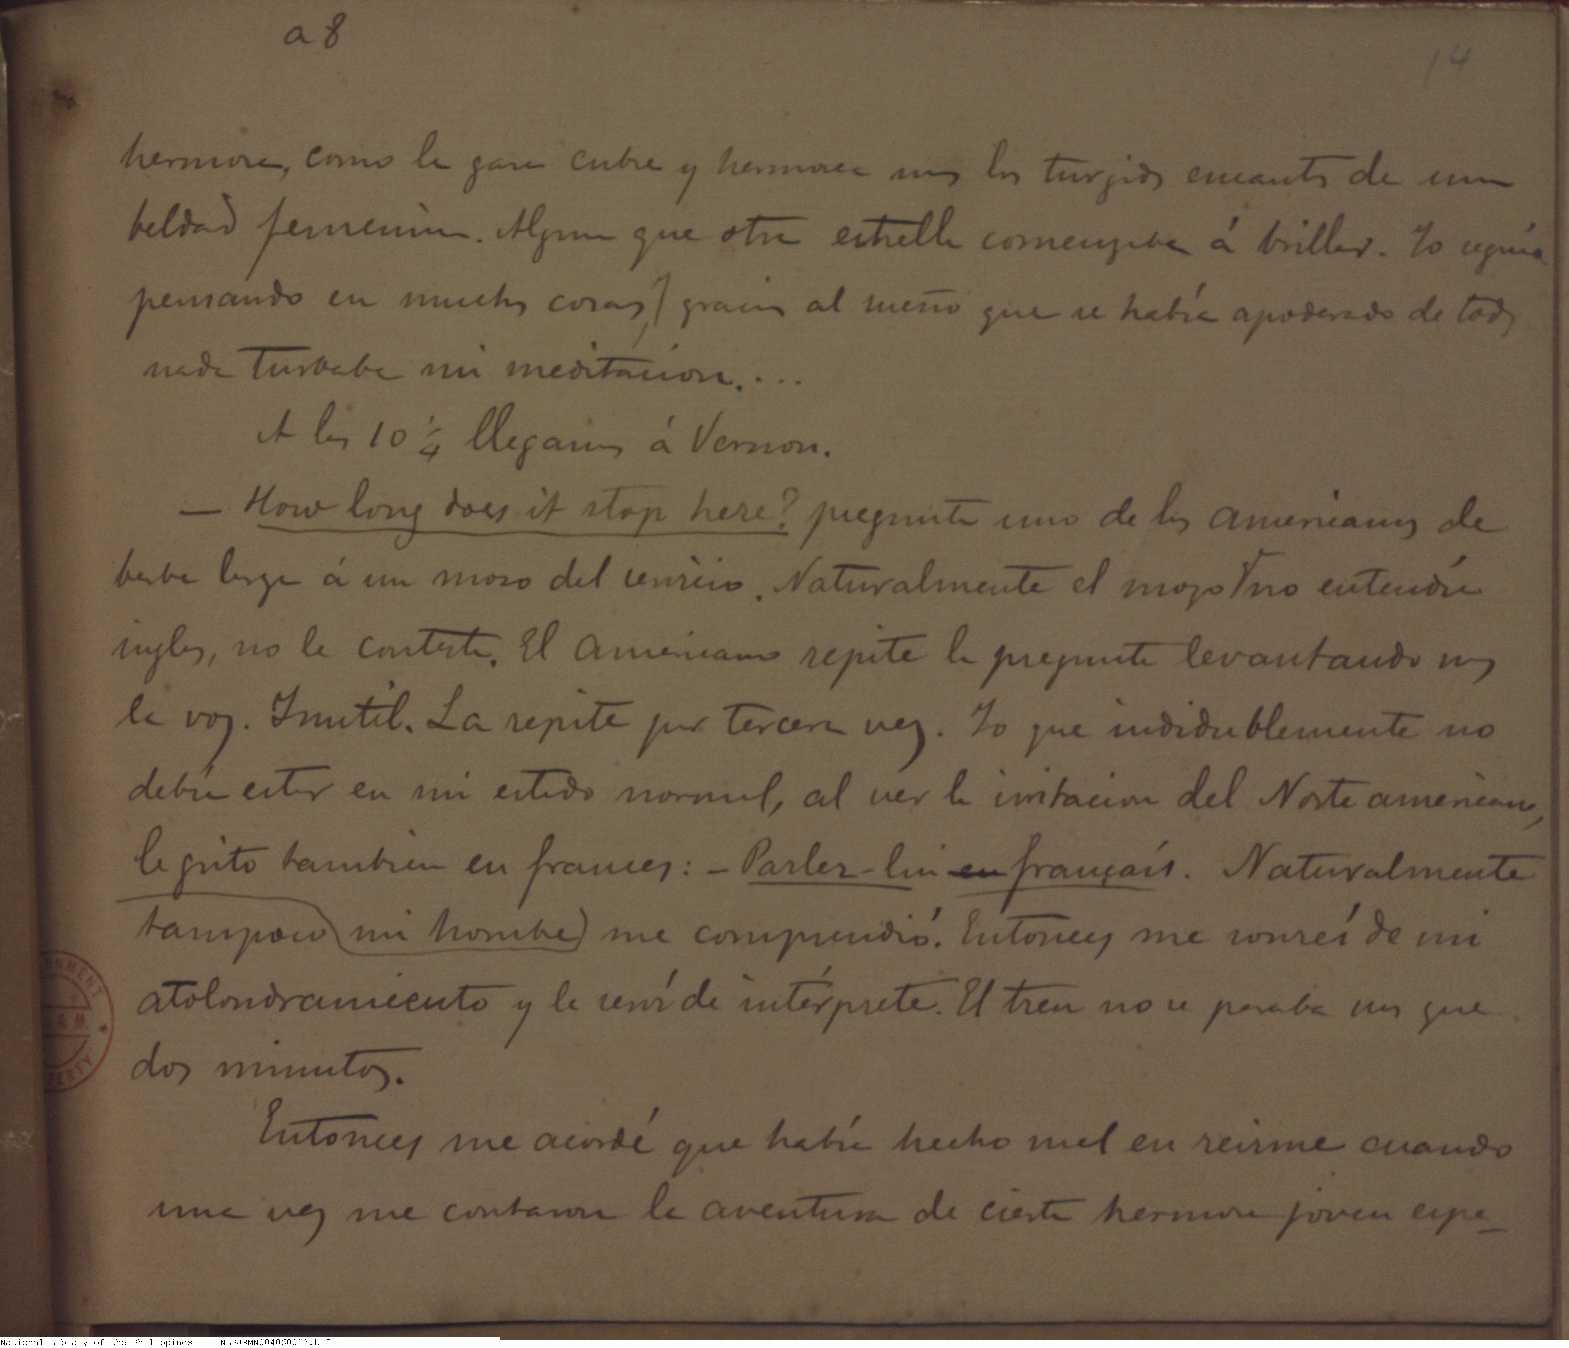 a 8
14
hermosea, como la gasa cubre y hermosea mas los turgidos encantos de una
beldad femenina. Alguna que otra estrella comenzaba á brillar. Yo seguia
pensando en muchas cosas, gracias al sueño que se habia apoderado de todos
nada turbaba mi meditacion....
A las 10 1/4 llegamos á Vernon.
— How long does it stop here? pregunta uno de los americanos de
barba larga á un moso del servicio. Naturalmente el mozo no entendia
ingles, no le contesta. El americano repite la pregunta levantando mas
la voz. Inutil. La repite por tercera vez. Yo que indidublemente no
debia estar en mi estado normal, al ver la irritacion del Norte americano,
le grito tambien en frances: — Parlez-lui en français. Naturalmente
tampoco mi hombre me comprendió. Entonces me sonreí de mi
atolondramiento y le serví de intérprete. El tren no se paraba mas que
dos minutos.
Entonces me acordé que habia hecho mal en reirme cuando
una vez me contaron la aventura de cierta hermosa joven espa-
National Library of the Philippines